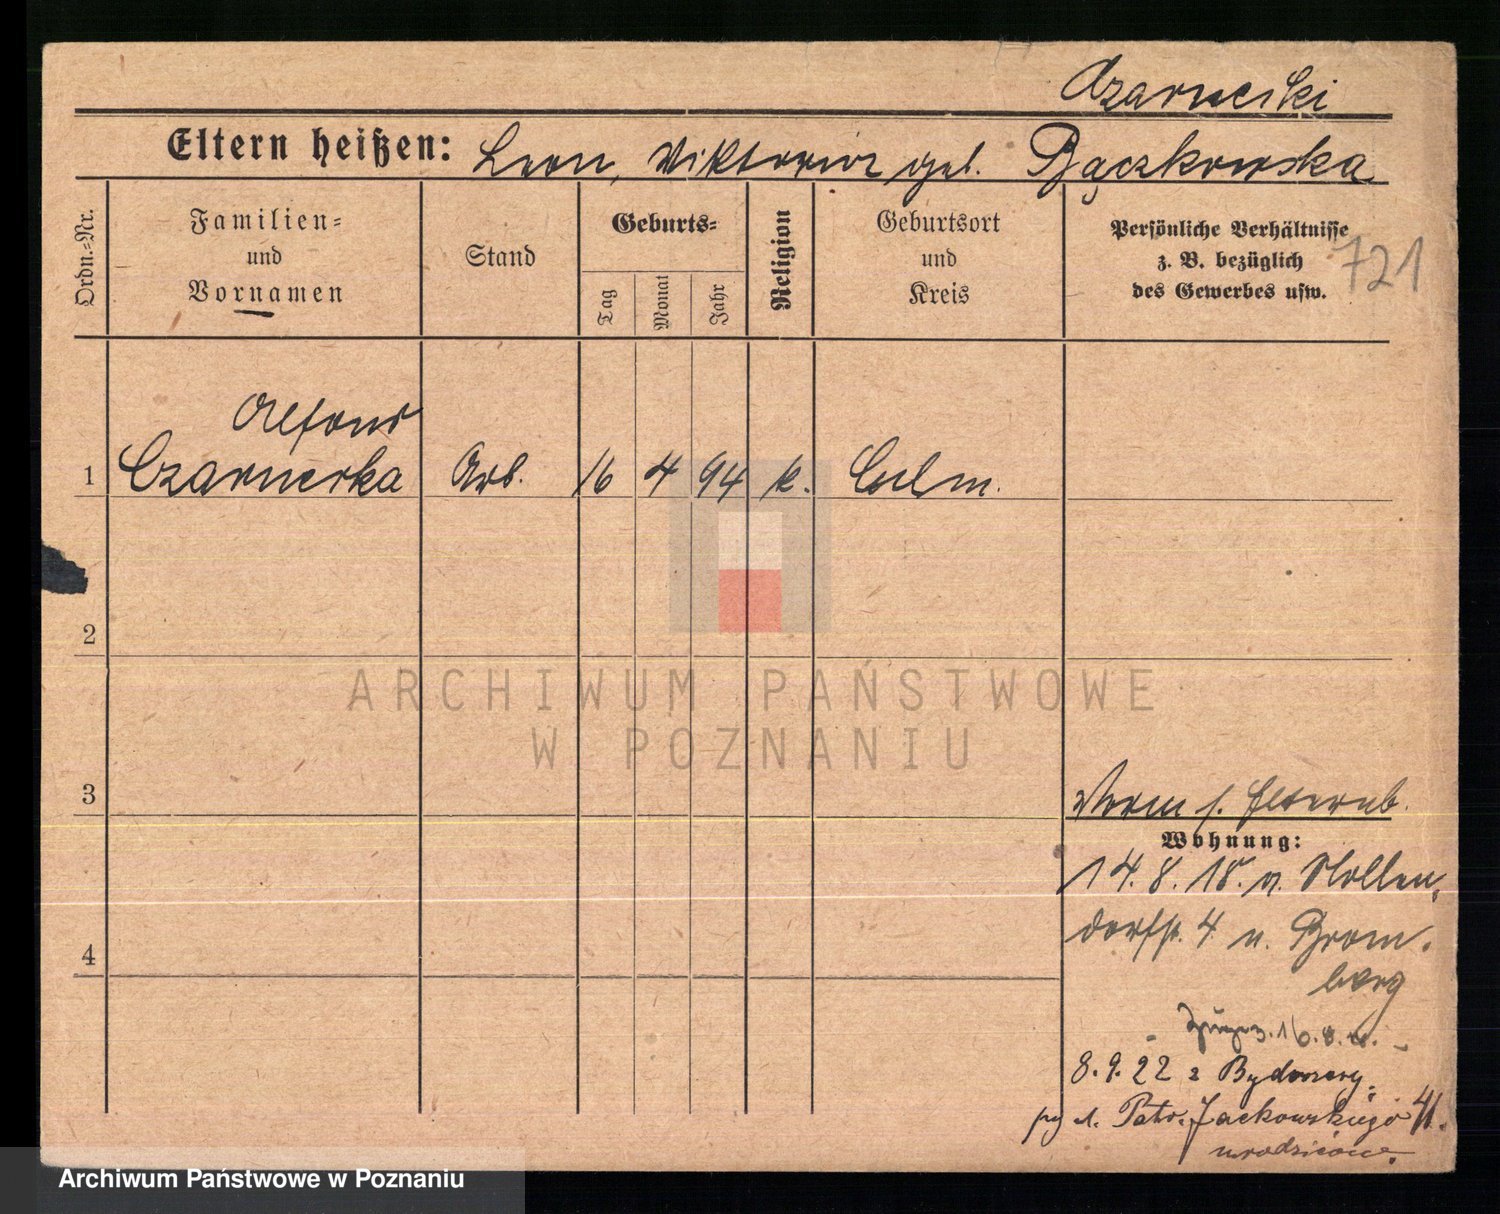 Czarnecki
Eltern heißen: Leon, Viktoria geb. Pączkowska
Ordn.=Nr.
Familien=
und
Vornamen
Stand
Geburts=
Tag
Monat
Jahr
Religion
Geburtsort
und
Kreis
Persönliche Verhältnisse
z. B. bezüglich
des Gewerbes usw.
721
Alfons
1 Czarnecka Arb. 16 4 94 k. Culm.
2
ARCHIWUM PAŃSTWOWE
W POZNANIU
3
Verm s. Elternb.
Wohnung:
14. 8. 18. n. Nollen
dorfstr. 4 n. Brom
berg
4
16. 8.
8. 9. 22 z Bydgoszczy
Patr. Jackowskiego 41.
Archiwum Państwowe w Poznaniu